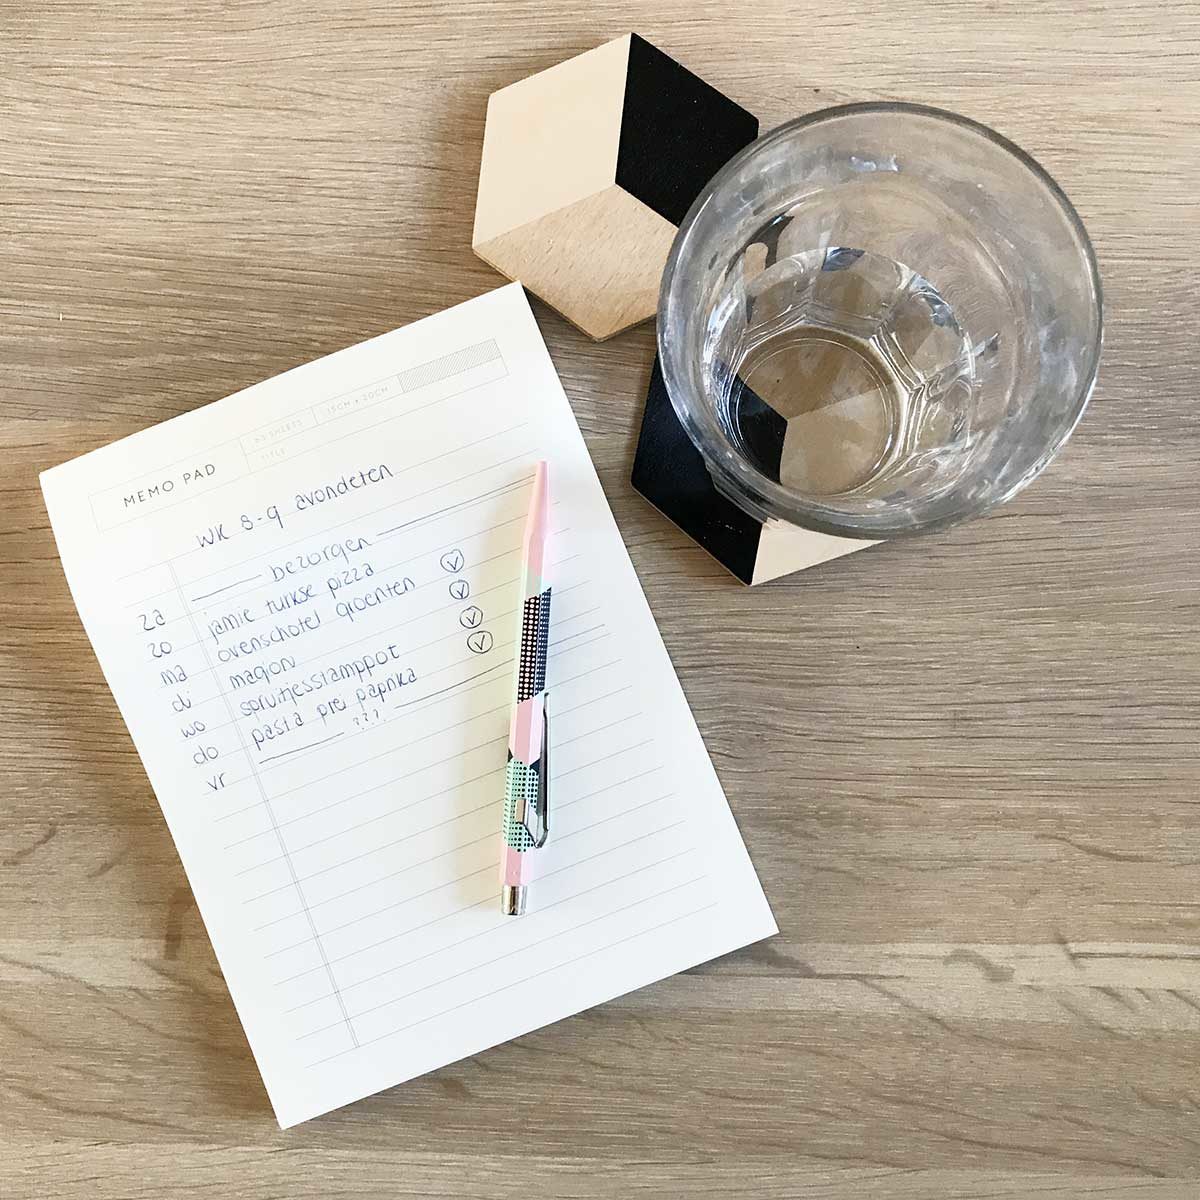 MEMO PAD
50 SHEETS
15CM x 20CM
TITLE
WK 8-9 avondeten
za bezorgen
zo jamie turkse pizza
ma ovenschotel groenten
di magion
wo spruitjesstamppot
do pasta prei paprika
vr ???